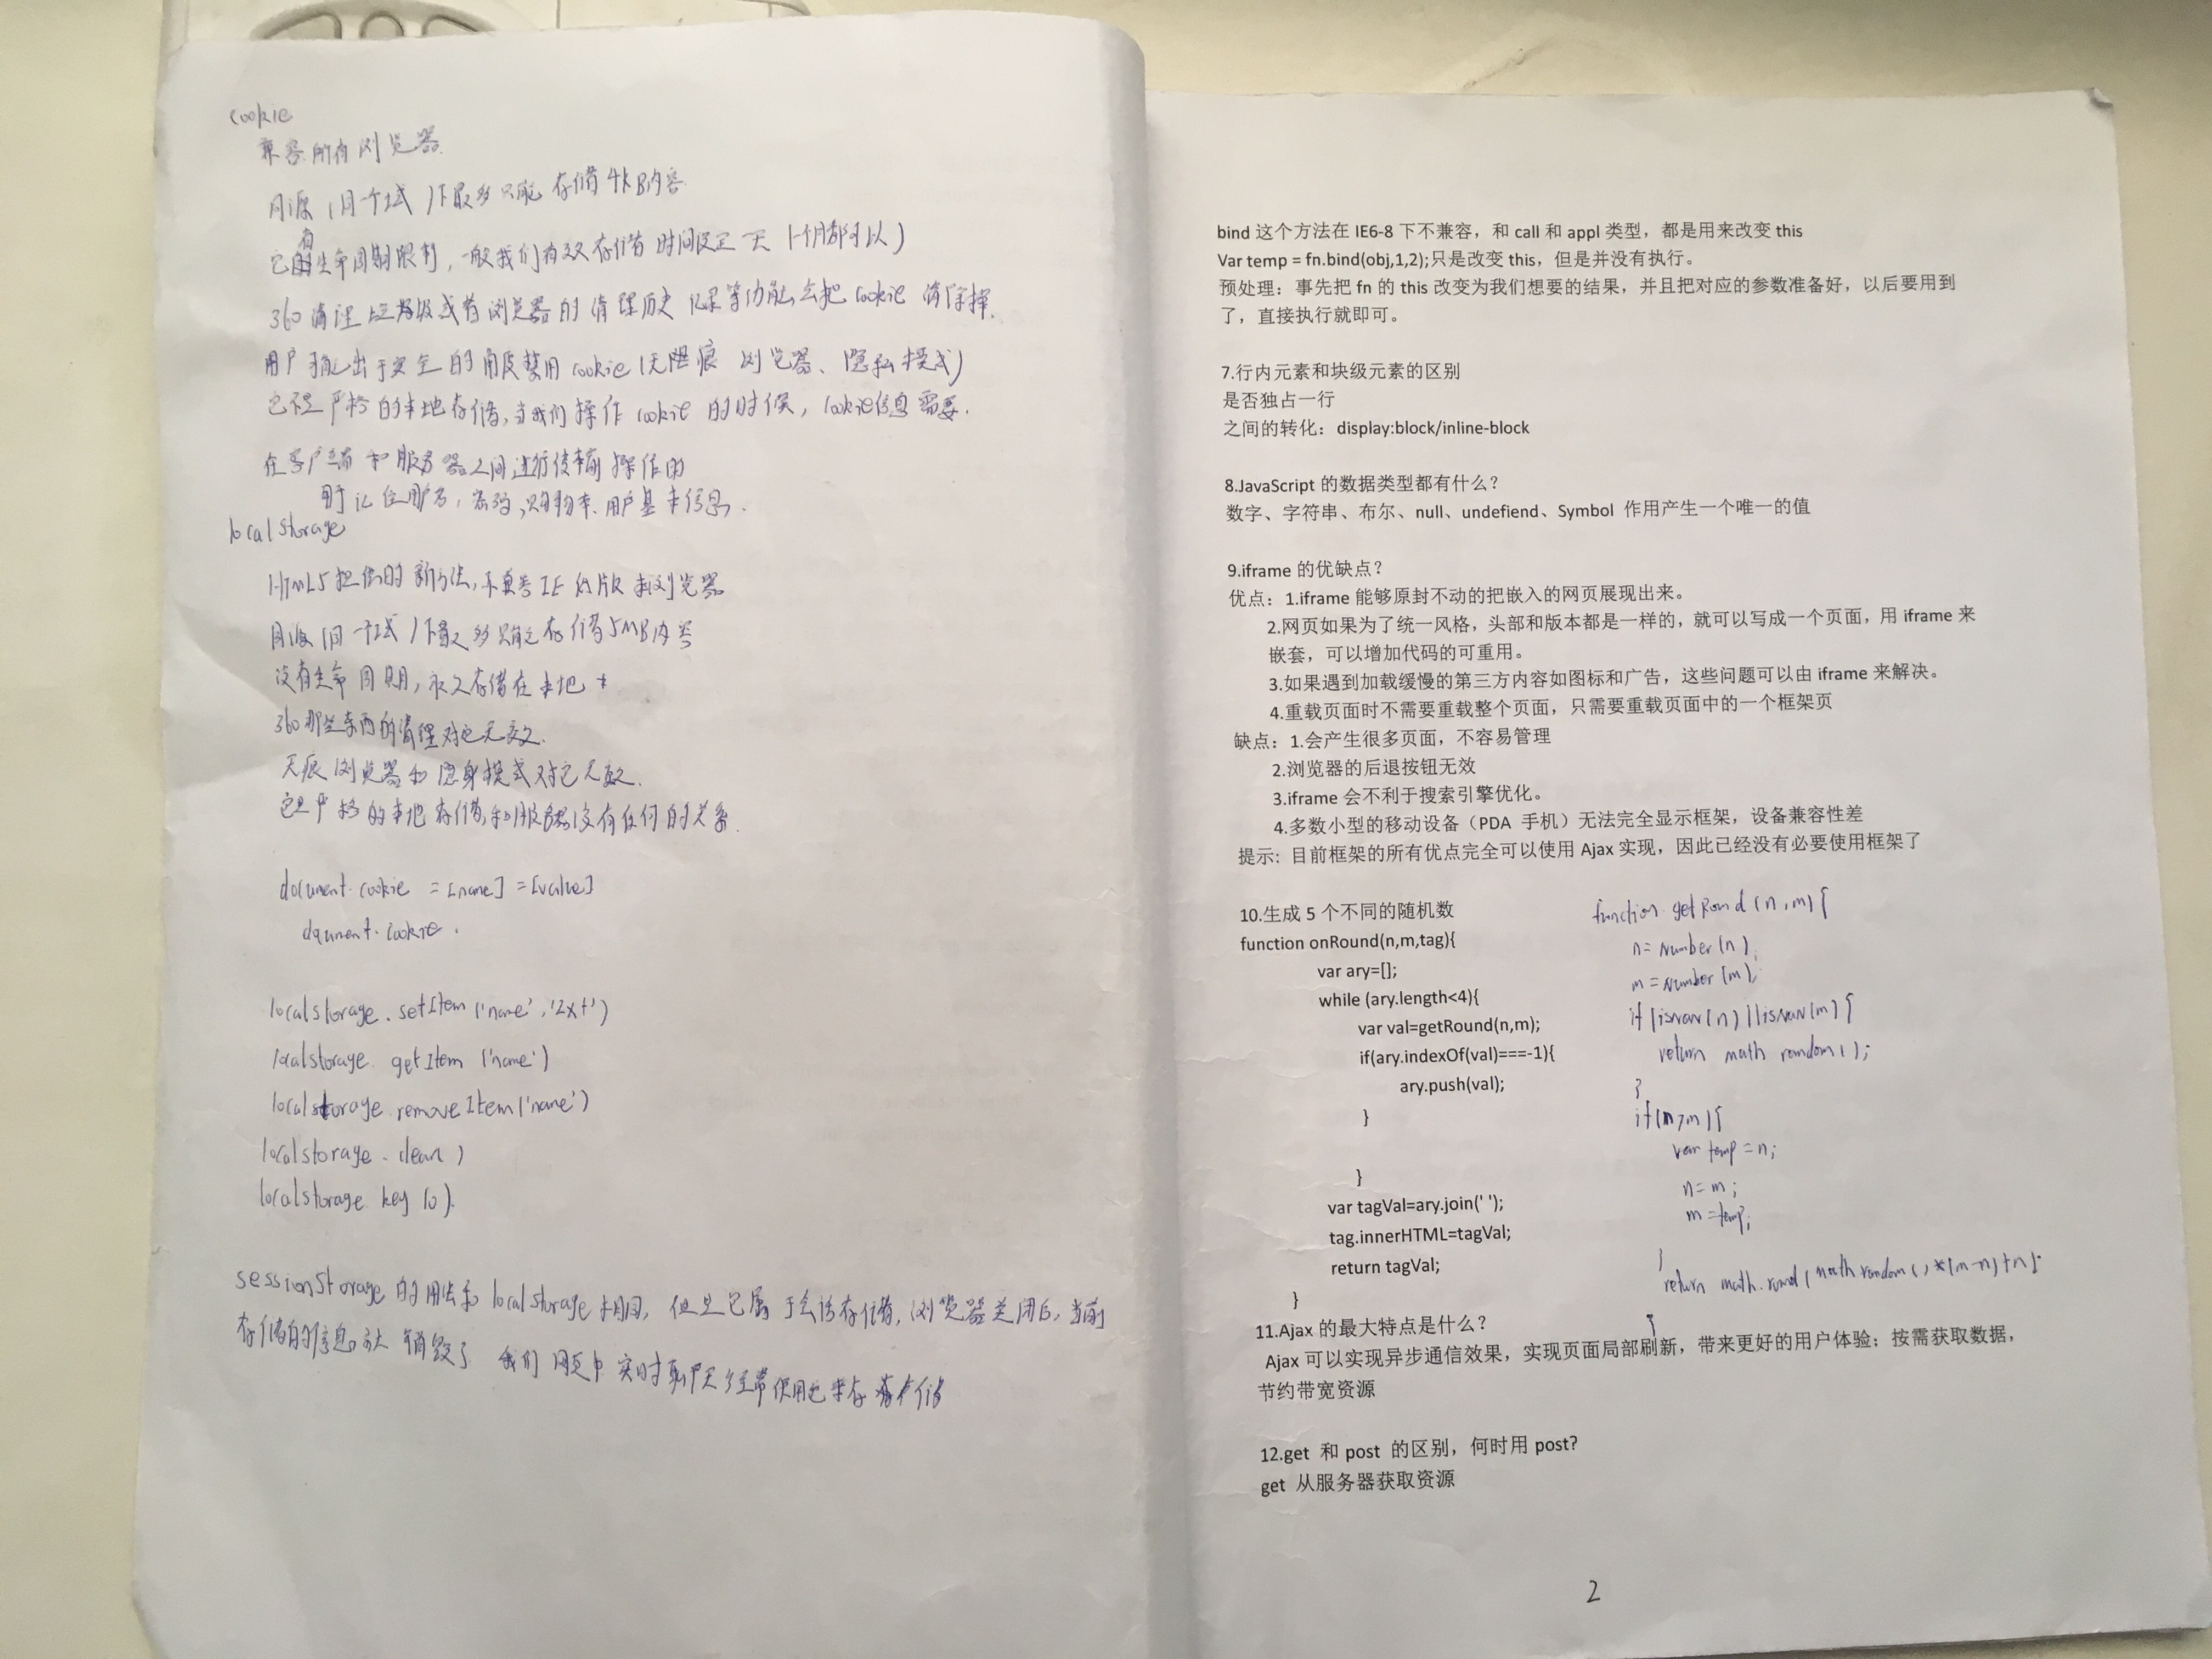 cookie
兼容所有浏览器
同源(同个域)下最多只能存储4kB内容
它有生命周期限制,一般我们有效存储时间设定 天 1个月都可以)
360清理垃圾或者浏览器的清理历史记录等功能会把cookie清除掉.
用户可能出于安全的角度禁用cookie(无痕浏览器、隐私模式)
它不是严格的本地存储,当我们操作cookie的时候,cookie信息需要.
在客户端和服务器之间进行传输操作的
用于记住用户名,密码,购物车.用户基本信息.
localstorage
HTML5提供的新方法,不兼容IE低版本浏览器
同源(同一个域)下最多只能存储5MB内容
没有生命周期,永久存储在本地
360那些东西的清理对它无效.
无痕浏览器和隐身模式对它无效.
它是严格的本地存储,和服务器没有任何的关系.
document.cookie =[name]=[value]
document.cookie.
localstorage.setItem('name','zxt')
localstorage.getItem('name')
localstorage.removeItem('name')
localstorage.clear)
localstorage.key(0).
sessionStorage的用法和localstorage相同,但是它属于会话存储,浏览器关闭后,当前
存储的信息就销毁了 我们网页中实时聊天经常使用它来存储
bind 这个方法在 IE6-8 下不兼容，和 call 和 appl 类型，都是用来改变 this
Var temp = fn.bind(obj,1,2);只是改变 this，但是并没有执行。
预处理：事先把 fn 的 this 改变为我们想要的结果，并且把对应的参数准备好，以后要用到
了，直接执行就即可。
7.行内元素和块级元素的区别
是否独占一行
之间的转化：display:block/inline-block
8.JavaScript 的数据类型都有什么？
数字、字符串、布尔、null、undefiend、Symbol 作用产生一个唯一的值
9.iframe 的优缺点？
优点：1.iframe 能够原封不动的把嵌入的网页展现出来。
2.网页如果为了统一风格，头部和版本都是一样的，就可以写成一个页面，用 iframe 来
嵌套，可以增加代码的可重用。
3.如果遇到加载缓慢的第三方内容如图标和广告，这些问题可以由 iframe 来解决。
4.重载页面时不需要重载整个页面，只需要重载页面中的一个框架页
缺点：1.会产生很多页面，不容易管理
2.浏览器的后退按钮无效
3.iframe 会不利于搜索引擎优化。
4.多数小型的移动设备（PDA 手机）无法完全显示框架，设备兼容性差
提示：目前框架的所有优点完全可以使用 Ajax 实现，因此已经没有必要使用框架了
10.生成 5 个不同的随机数
function onRound(n,m,tag){
var ary=[];
while (ary.length<4){
var val=getRound(n,m);
if(ary.indexOf(val)===-1){
ary.push(val);
}
}
var tagVal=ary.join(' ');
tag.innerHTML=tagVal;
return tagVal;
}
function getRond(n,m){
n=Number(n);
m=Number(m);
if(isNaN(n)||isNaN(m){
return math random();
}
if(n>m){
var temp=n;
n=m;
m=temp;
}
return math.round(math random()*(m-n)+n);
}
11.Ajax 的最大特点是什么？
Ajax 可以实现异步通信效果，实现页面局部刷新，带来更好的用户体验；按需获取数据，
节约带宽资源
12.get 和 post 的区别，何时用 post?
get 从服务器获取资源
2